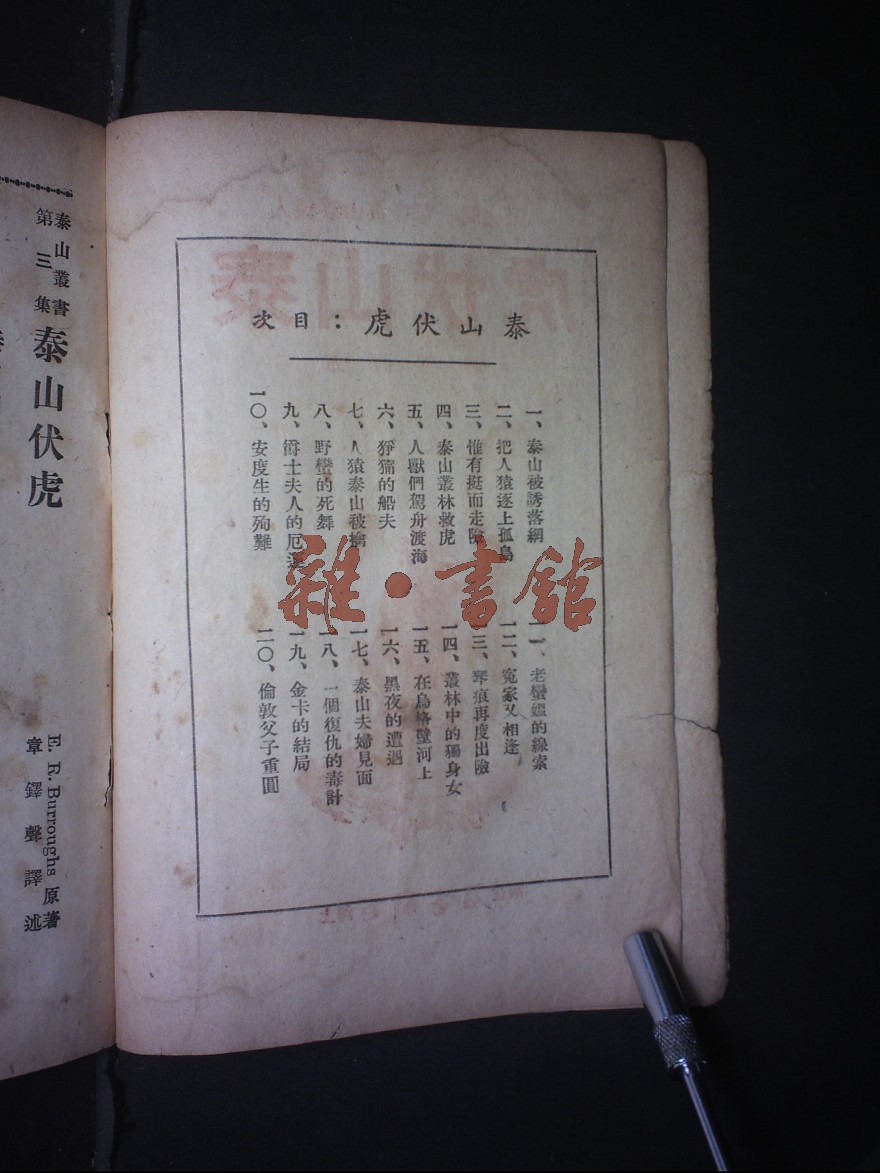 泰山伏虎：目次
一、泰山被誘落網
二、把人猿逐上孤島
三、惟有挺而走險
四、泰山叢林救虎
五、人獸們駕舟渡海
六、猙獰的船夫
七、人猿泰山被擒
八、野蠻的死舞
九、爵士夫人的厄運
一〇、安度生的殉難
一一、老蠻媼的線索
一二、冤家又相逢
一三、琴痕再度出險
一四、叢林中的獨身女
一五、在烏格壁河上
一六、黑夜的遭遇
一七、泰山夫婦見面
一八、一個復仇的毒計
一九、金卡的結局
二〇、倫敦父子重圓
雜·書館
泰山叢書
第三集
泰山伏虎
E. R. Burroughs 原著
章鐸聲譯述
泰山伏虎